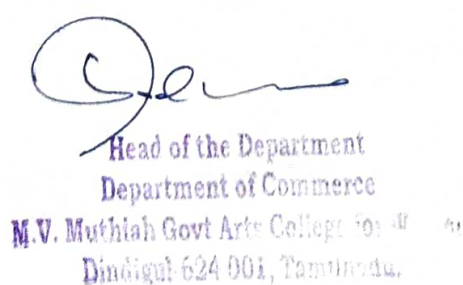 Head of the Department
Department of Commerce
M.V. Muthiah Govt Arts College for
Dindigul-624 001, Tamilnadu.